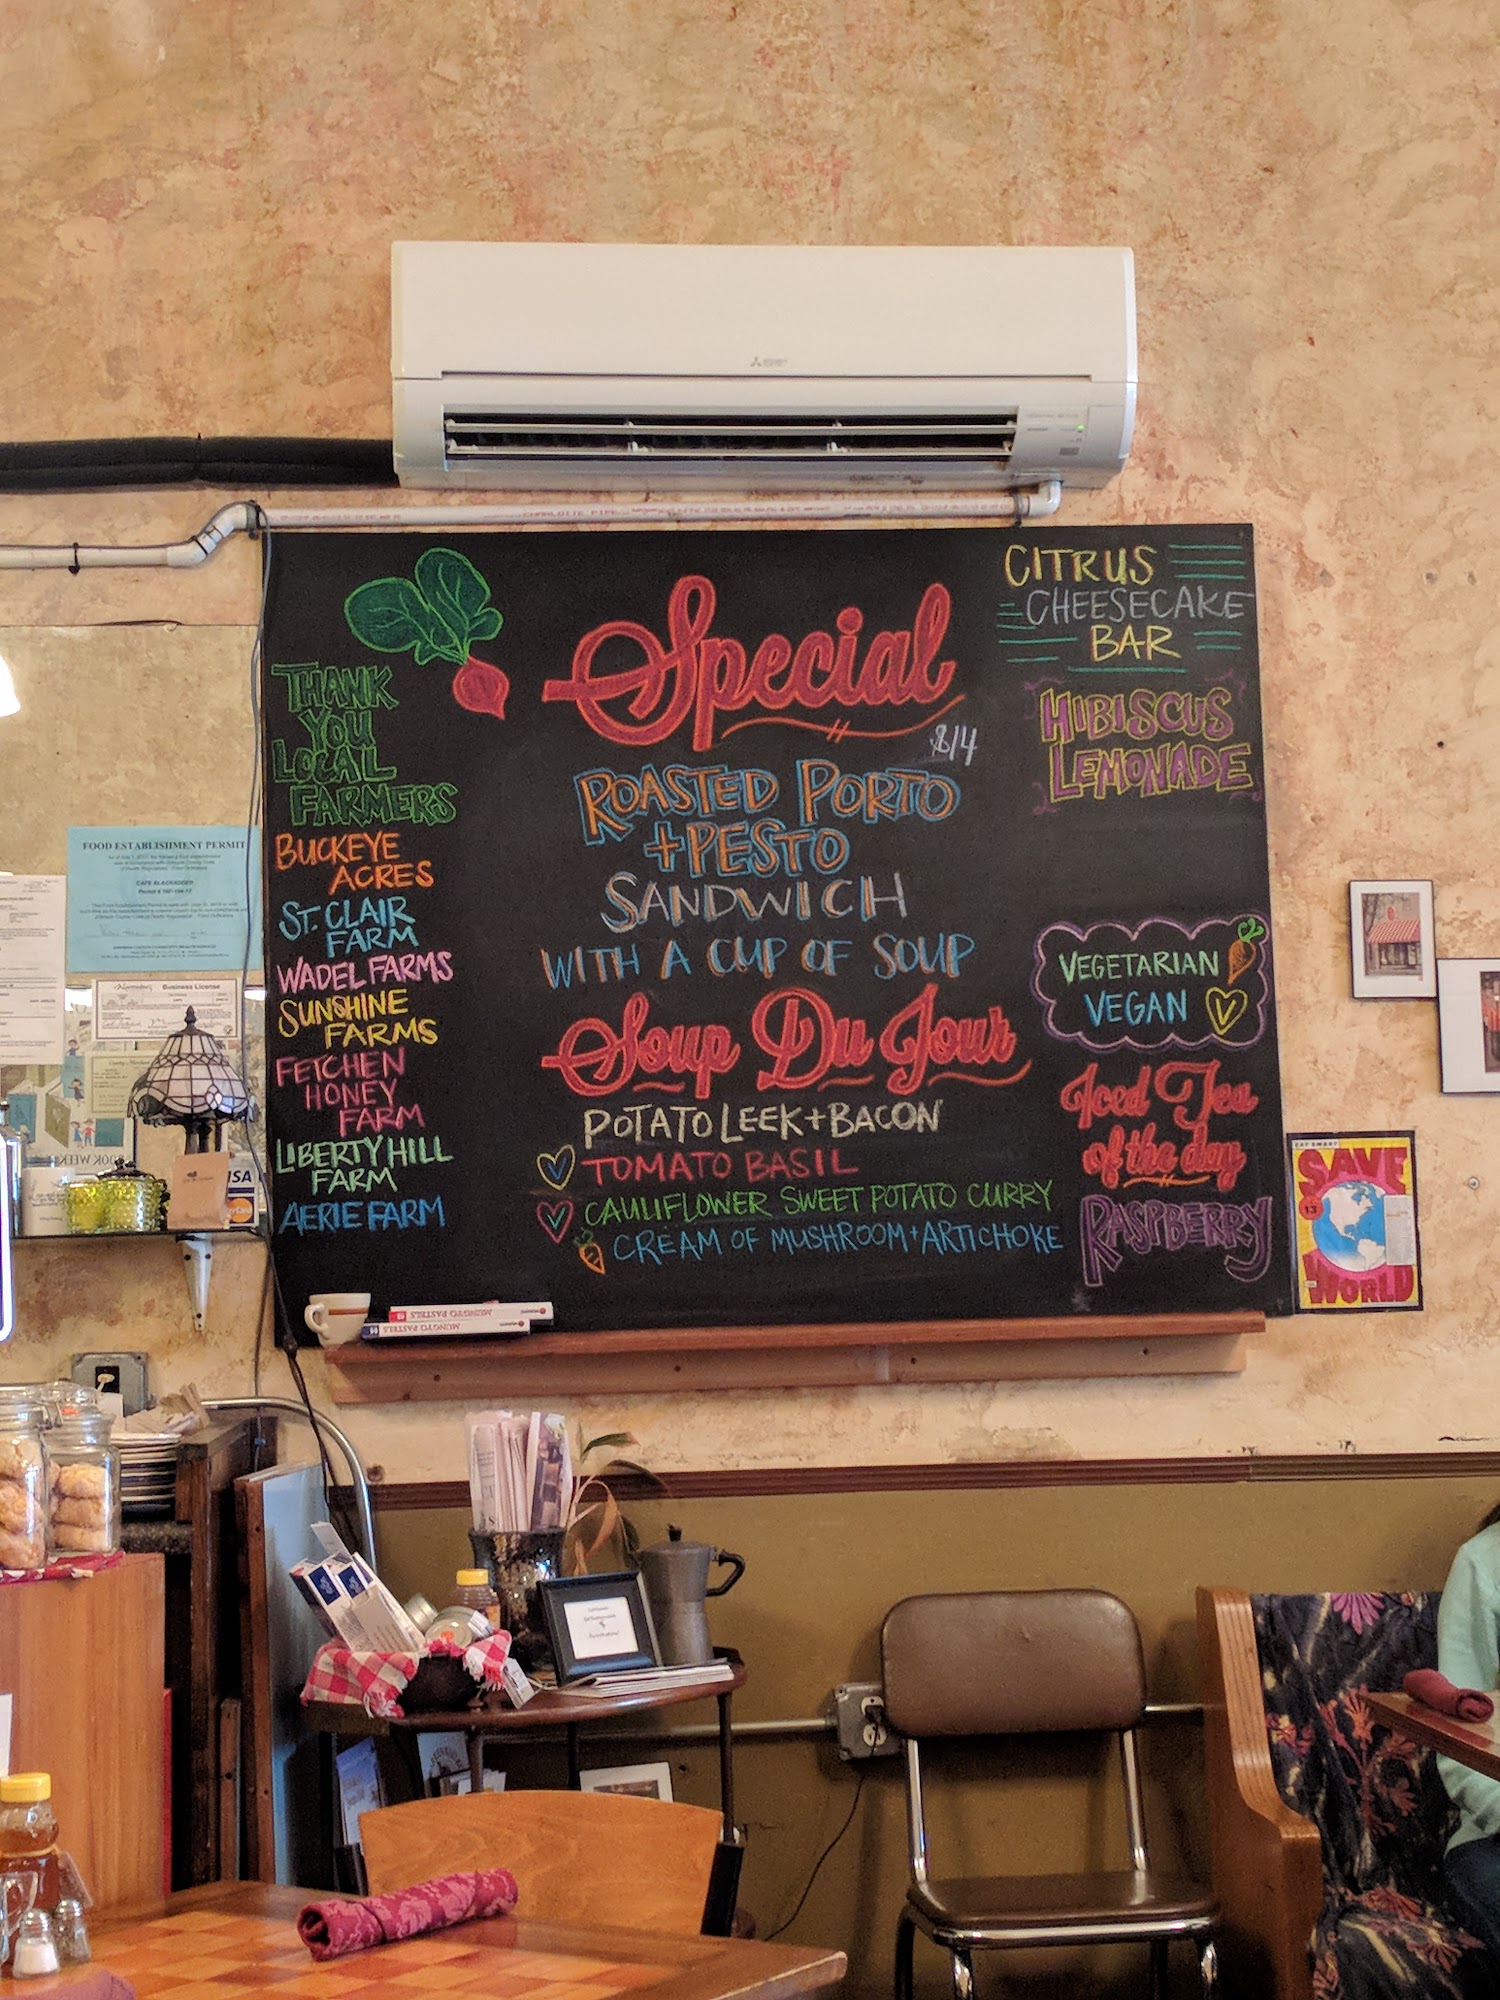 THANK
YOU
LOCAL
FARMERS
BUCKEYE
ACRES
ST. CLAIR
FARM
WADEL FARMS
SUNSHINE
FARMS
FETCHEN
HONEY
FARM
LIBERTY HILL
FARM
AERIE FARM
Special
$14
ROASTED PORTO
+ PESTO
SANDWICH
WITH A CUP OF SOUP
Soup Du Jour
POTATO LEEK + BACON
V TOMATO BASIL
V CAULIFLOWER SWEET POTATO CURRY
CREAM OF MUSHROOM + ARTICHOKE
CITRUS
CHEESECAKE
BAR
HIBISCUS
LEMONADE
VEGETARIAN
VEGAN V
Iced Tea
of the day
RASPBERRY
FOOD ESTABLISHMENT PERMIT
Business License
VISA
MUNGYO PASTELS
MUNGYO PASTELS
CHARLOTTE PIPE
EAT SMART
SAVE
13
WORLD